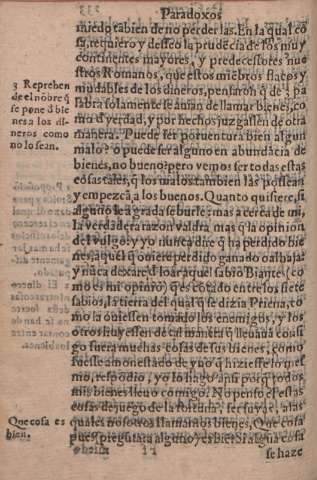 Paradoxos
miedo tãbien de no perder las. En la qual co
sa, requiero y desseo la prudẽcia de los muy
continentes mayores, y predecessores nue
stros Romanos, que estos miẽbros flacos y
mudables de los dineros, pensarõ q̃ de pa
labra solamente se auian de llamar bienes, co
mo d̃ verdad, y por hechos juzgassen de otra
manera. Puede ser por uentura bien algun
malo? o puede ser alguno en abundãcia de
bienes, no bueno? pero vemos ser todas estas
cosas tales, q̃ los malos tambien las posseã
y empezcã a los buenos. Quanto quisiere, si
alguno le agrada se burle: mas acerca de mi,
la verdadera razon valdra mas q̃ la opinion
del vulgo: y yo nunca dire q̃ ha perdido bie
nes, aquel q̃ ouiere perdido ganado o alhaja
y nũca dexare d̃ loar aquel sabio Biante, (co
mo es mi opiniõ) q̃ es cõtado entre los siete
sabios, la tierra del qual q̃ se dizia Priena, co
mo la ouiessen tomado los enemigos, y los
otros huyessen de tal manera q̃ lleuauã consi
go fuera muchas cosas de sus bienes, como
fuesse amonestado de vno q̃ hiziesse lo mes
mo, respõdio, yo lo hago assi porq̃ todos
mis bienes lleuo comigo. No pensò el estas
cosas de juego de la fortuna, ser suyas, a las
quales nosotros llamamos bienes, Que cosa
pues preguntara alguno es bien? Si alguna cosa
se haze
3 Reprehen
de el nõbre q̃
se pone a ble
nes a los di-
neros como
no lo sean.
Que cosa es
bien.